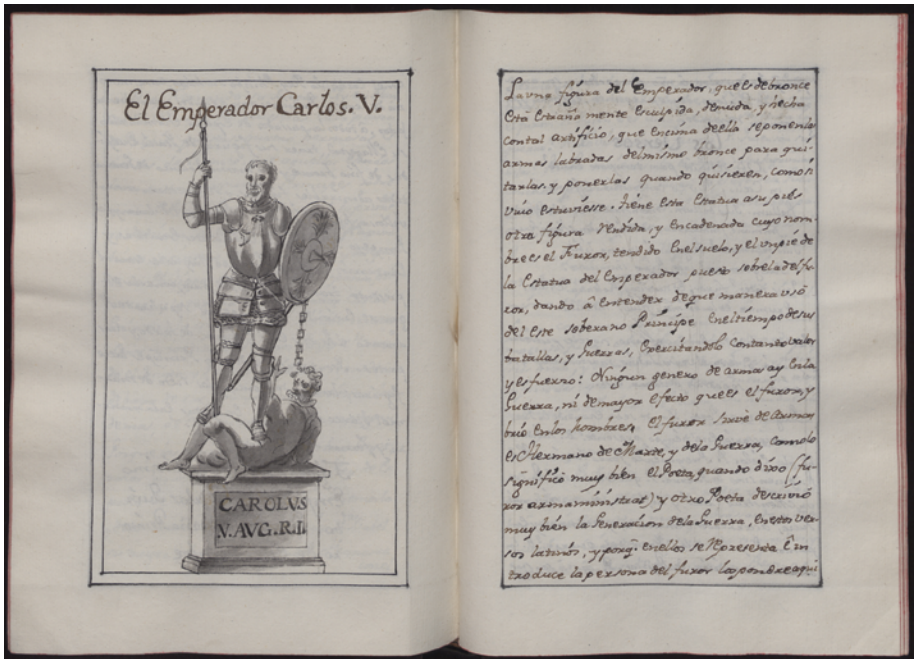 El Emperador Carlos. V.
CAROLVS
V. AVG. R. I.
La vna figura del Emperador, que es de bronce
está estraña mente esculpida, desnuda, y hecha
con tal artificio, que encima de ella se ponen las
armas labradas del misme bronce para qui-
tarlas. y ponerlas quando quisieren, como si
vivo estuviesse. tiene esta Estatua a su piés
otra figura rendida, y encadenada cuyo nom-
bre es el Furor, tendido en el suelo, y el vn pie de
la Estatua del Emperador puesto sobre la del fu-
ror, dando â entender de que manera vsó
del este soberano Principe en el tiempo de sus
batallas, y Guerras, exercitandolo con tanto valor
y esfuerno: Ningun genero de armas ay en la
Guerra, ni de mayor efecto que es el furor, y
brio en los hombres, El furor sirve de armas
es Hermano de Marte, y de la Guerra, como lo
significó muy bien el Poeta, quando dixo (fu-
ror arma ministrat) y otro Poeta descrivió
muy bien la Generacion de la Guerra, en estos ver-
sos latinos, y porq. en ellos se representa. È in
troduce la persona del furor los pondre aqui